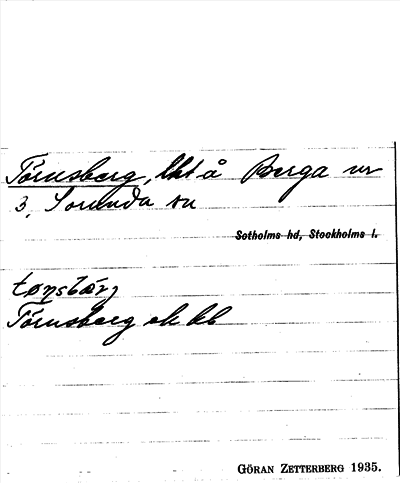 Törnsberg, lht å Berga nr
3, Sorunda sn
Sotholms hd, Stockholms l.
tørnsbærj
Törnsberg ek kb
GÖRAN ZETTERBERG 1935.